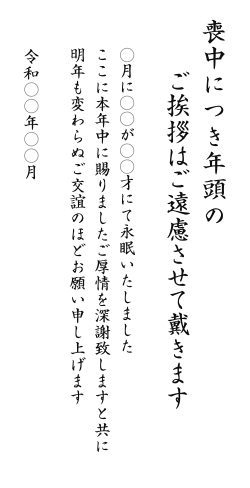 喪中につき年頭の
ご挨拶はご遠慮させて戴きます
〇月に〇〇が〇〇才にて永眠いたしました
ここに本年中に賜りましたご厚情を深謝致しますと共に
明年も変わらぬご交誼のほどお願い申し上げます
令和〇〇年〇〇月